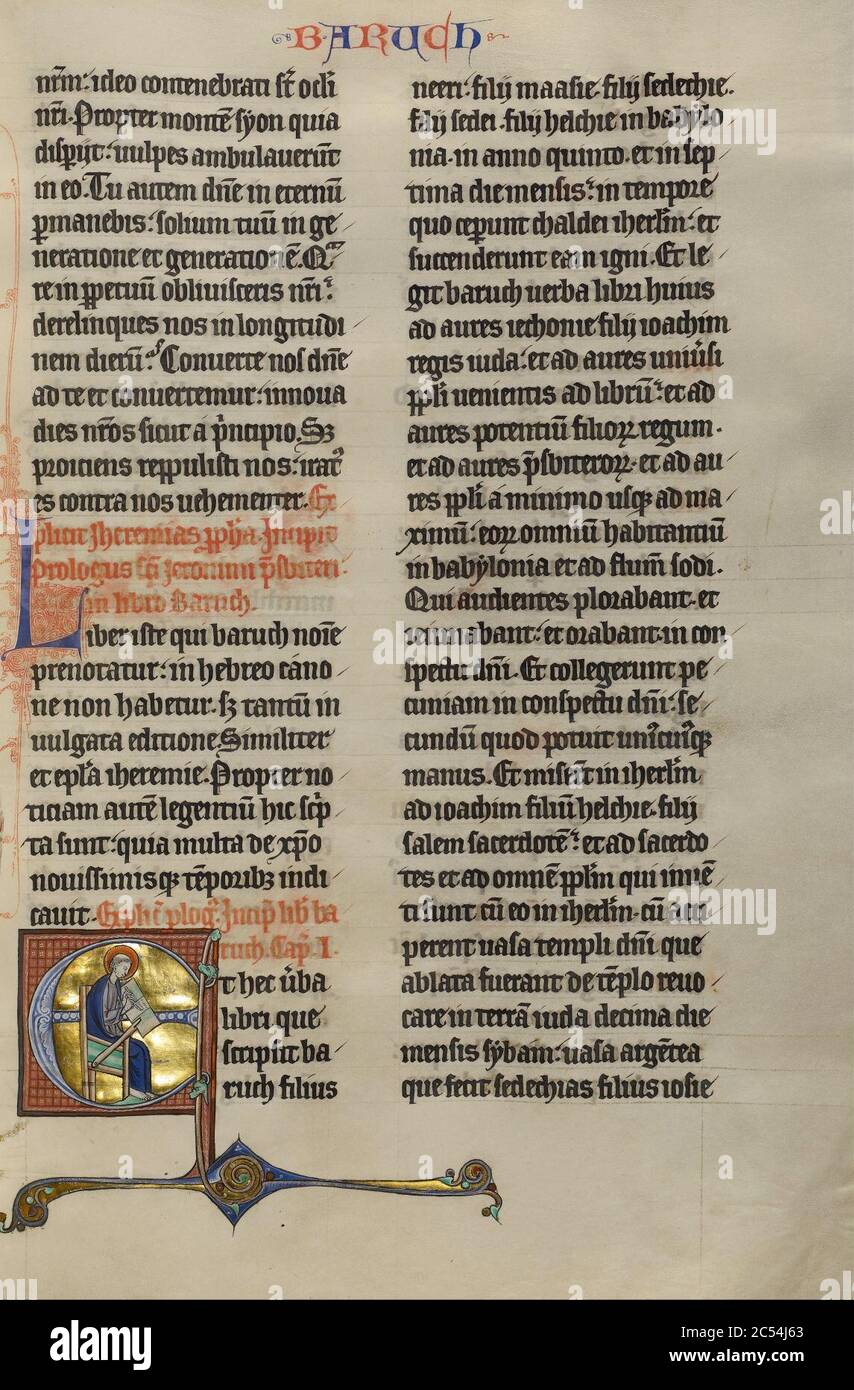 BARUCH
nr̄m: ideo contenebrati st̄ ocl̄i
nr̄i. Propter montē syon quia
disp̱ijt: uulpes ambulauerūt
in eo. Tu autem dn̄e in eternū
ꝑmanebis: solium tuū in ge
neratione et generationē. Qua
re in ꝑpetuū obliuisceris nr̄i:
derelinques nos in longitudi
nem dierū? Conuerte nos dn̄e
ad te et conuertemur: innoua
dies nr̄os sicut a pͥncipio. Sꝫ
proiciens reppulisti nos: iratꝰ
es contra nos uehementer. Ex
plicit Jheremias ꝓph̄a. Incipit
Prologus sc̄i Jeronimi p̄sbiteri.
in libro Baruch.
Liber iste qui baruch noīe
prenotatur: in hebreo cano
ne non habetur. sꝫ tantū in
uulgata editione. Similiter
et epl̄a iheremie. Propter no
ticiam autē legentiū hic scͥp
ta sunt: quia multa de xp̄o
nouissimisqꝫ tēporibꝫ indi
cauit. Explic̄ plogꝰ. Incip̄ lib̄ ba
ruch. Cap̄. I.
Et hec ūba
libri que
scripsit ba
ruch filius
neeri. filij maasie. filij sedechie.
filij sedei. filij helchie in babylo
nia. in anno quinto. et in sep
tima die mensis: in tempore
quo ceperunt chaldei iherl̄m: et
succenderunt eam igni. Et le
git baruch uerba libri huius
ad aures iechonie filij ioachim
regis iuda: et ad aures uniūsi
ppl̄i uenientis ad librū: et ad
aures potentiū filioꝝ regum.
et ad aures p̄sbiteroꝝ. et ad au
res ppl̄i a minimo usqꝫ ad ma
ximū: eoꝝ omniū habitantiū
in babylonia et ad flum̄ sodi.
Qui audientes plorabant. et
ieiunabant: et orabant. in con
spectu dn̄i. Et collegerunt pe
cuniam in conspectu dn̄i: se
cundū quod potuit uniꝰcuiꝰqꝫ
manus. Et misēt in iherl̄m
ad ioachim filiū helchie. filij
salem sacerdotē: et ad sacerdo
tes et ad omnē ppl̄m qui inuē
ti sunt cū eo in iherl̄m. cū acci
perent uasa templi dn̄i que
ablata fuerant de tēplo reuo
care in terrā iuda decima die
mensis sybam: uasa argētea
que fecit sedechias filius iosie
alamy
Image ID: 2C54J63
www.alamy.com